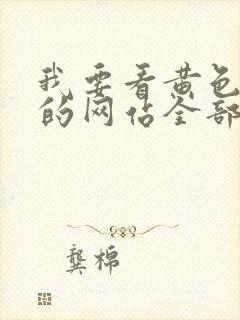 我要看黄色
的网站全部
龚棉